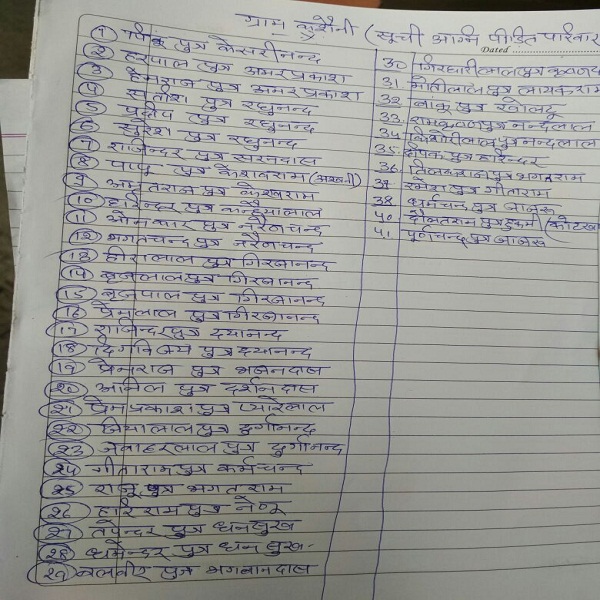 ग्राम कुशैनी (सूची अग्नि पीडित परिवार
Dated
1 पिंकू पुत्र केसरीनन्द
2 हरपाल पुत्र अमरप्रकाश
3 हेमराज पुत्र अमरप्रकाश
4 सतीश पुत्र रघुनन्द
5 प्रदीप पुत्र रघुनन्द
6 सुरेश पुत्र रघुनन्द
7 राजेन्दर पुत्र सरनदास
8 पाप्पू पुत्र केशवराम
9 अमृतराज पुत्र केशवराम
10 हरिन्दर पुत्र कन्हैयालाल
11 ओमकार पुत्र नरैनचन्द
12 भगतचन्द पुत्र नरैनचन्द
13 हीरालाल पुत्र गिरजानन्द
१४ बृजलाल पुत्र गिरजानन्द
15 बृजपाल पुत्र गिरजानन्द
१६ प्रेमलाल पुत्र गिरजानन्द
१७ राजिन्दर पुत्र दयानन्द
१८ दिगविजय पुत्र दयानन्द
१९ प्रेमराज पुत्र भजनदास
२० अनिल पुत्र दर्शनदास
२१ प्रेमप्रकाश पुत्र प्यारेलाल
२२ जियालाल पुत्र दुर्गानन्द
२३ जवाहरलाल पुत्र दुर्गानन्द
२४ गीताराम पुत्र कर्मचन्द
२५ राजू पुत्र भगतराम
२६ हरिराम पुत्र
२७ तपेन्दर पुत्र धनसुख
२८ धर्मेन्दर पुत्र धनसुख
२९ बलवीर पुत्र भगवानदास
30. गिरधारीलाल पुत्र
31. मोतीलाल पुत्र लायकराम
32. पुत्र
33. रामकृष्ण पुत्र नन्दलाल
34. किशोरीलाल पुत्र नन्दलाल
35. दीपक पुत्र हरिन्दर
36. तिलकराज पुत्र भगतराम
37. रमेश पुत्र गीताराम
38. कर्मचन्द पुत्र
40. दौलतराम पुत्र
41. पूर्णचन्द पुत्र